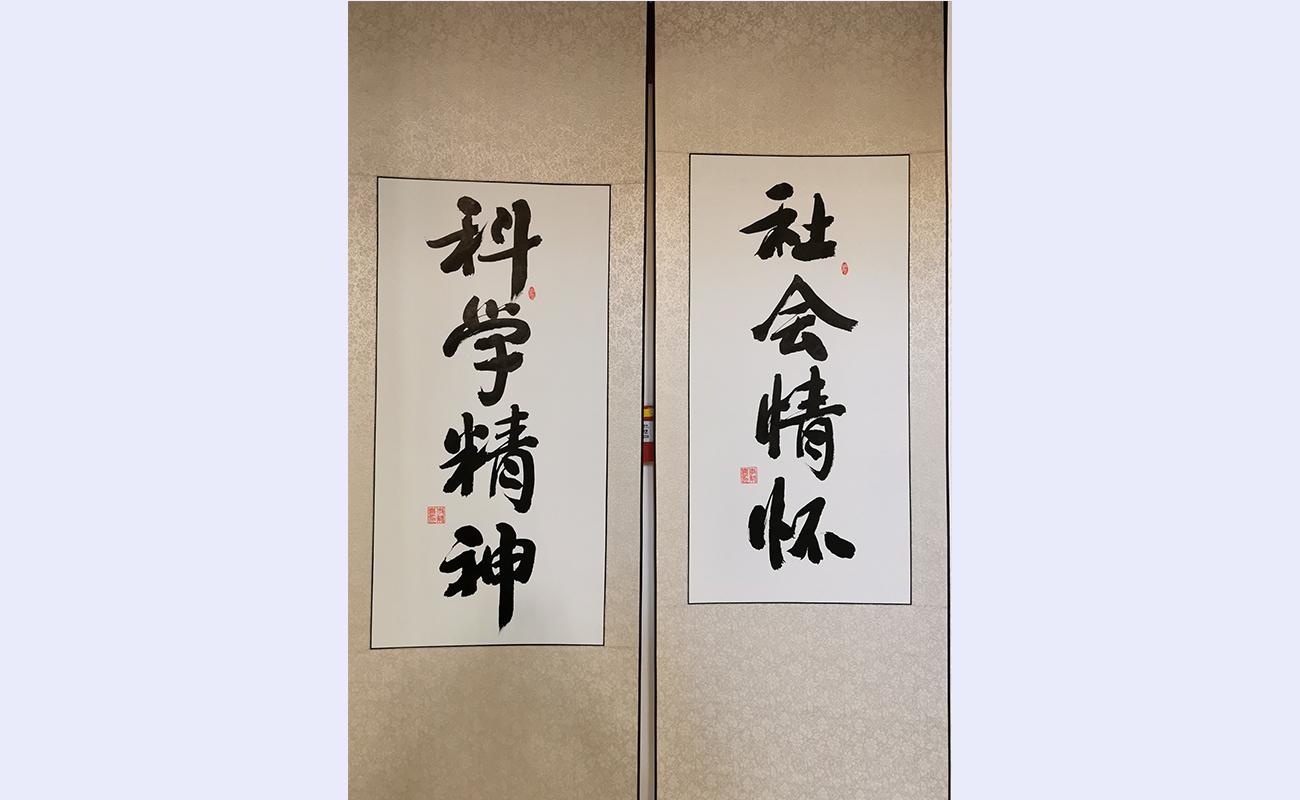 科学精神
社会情怀